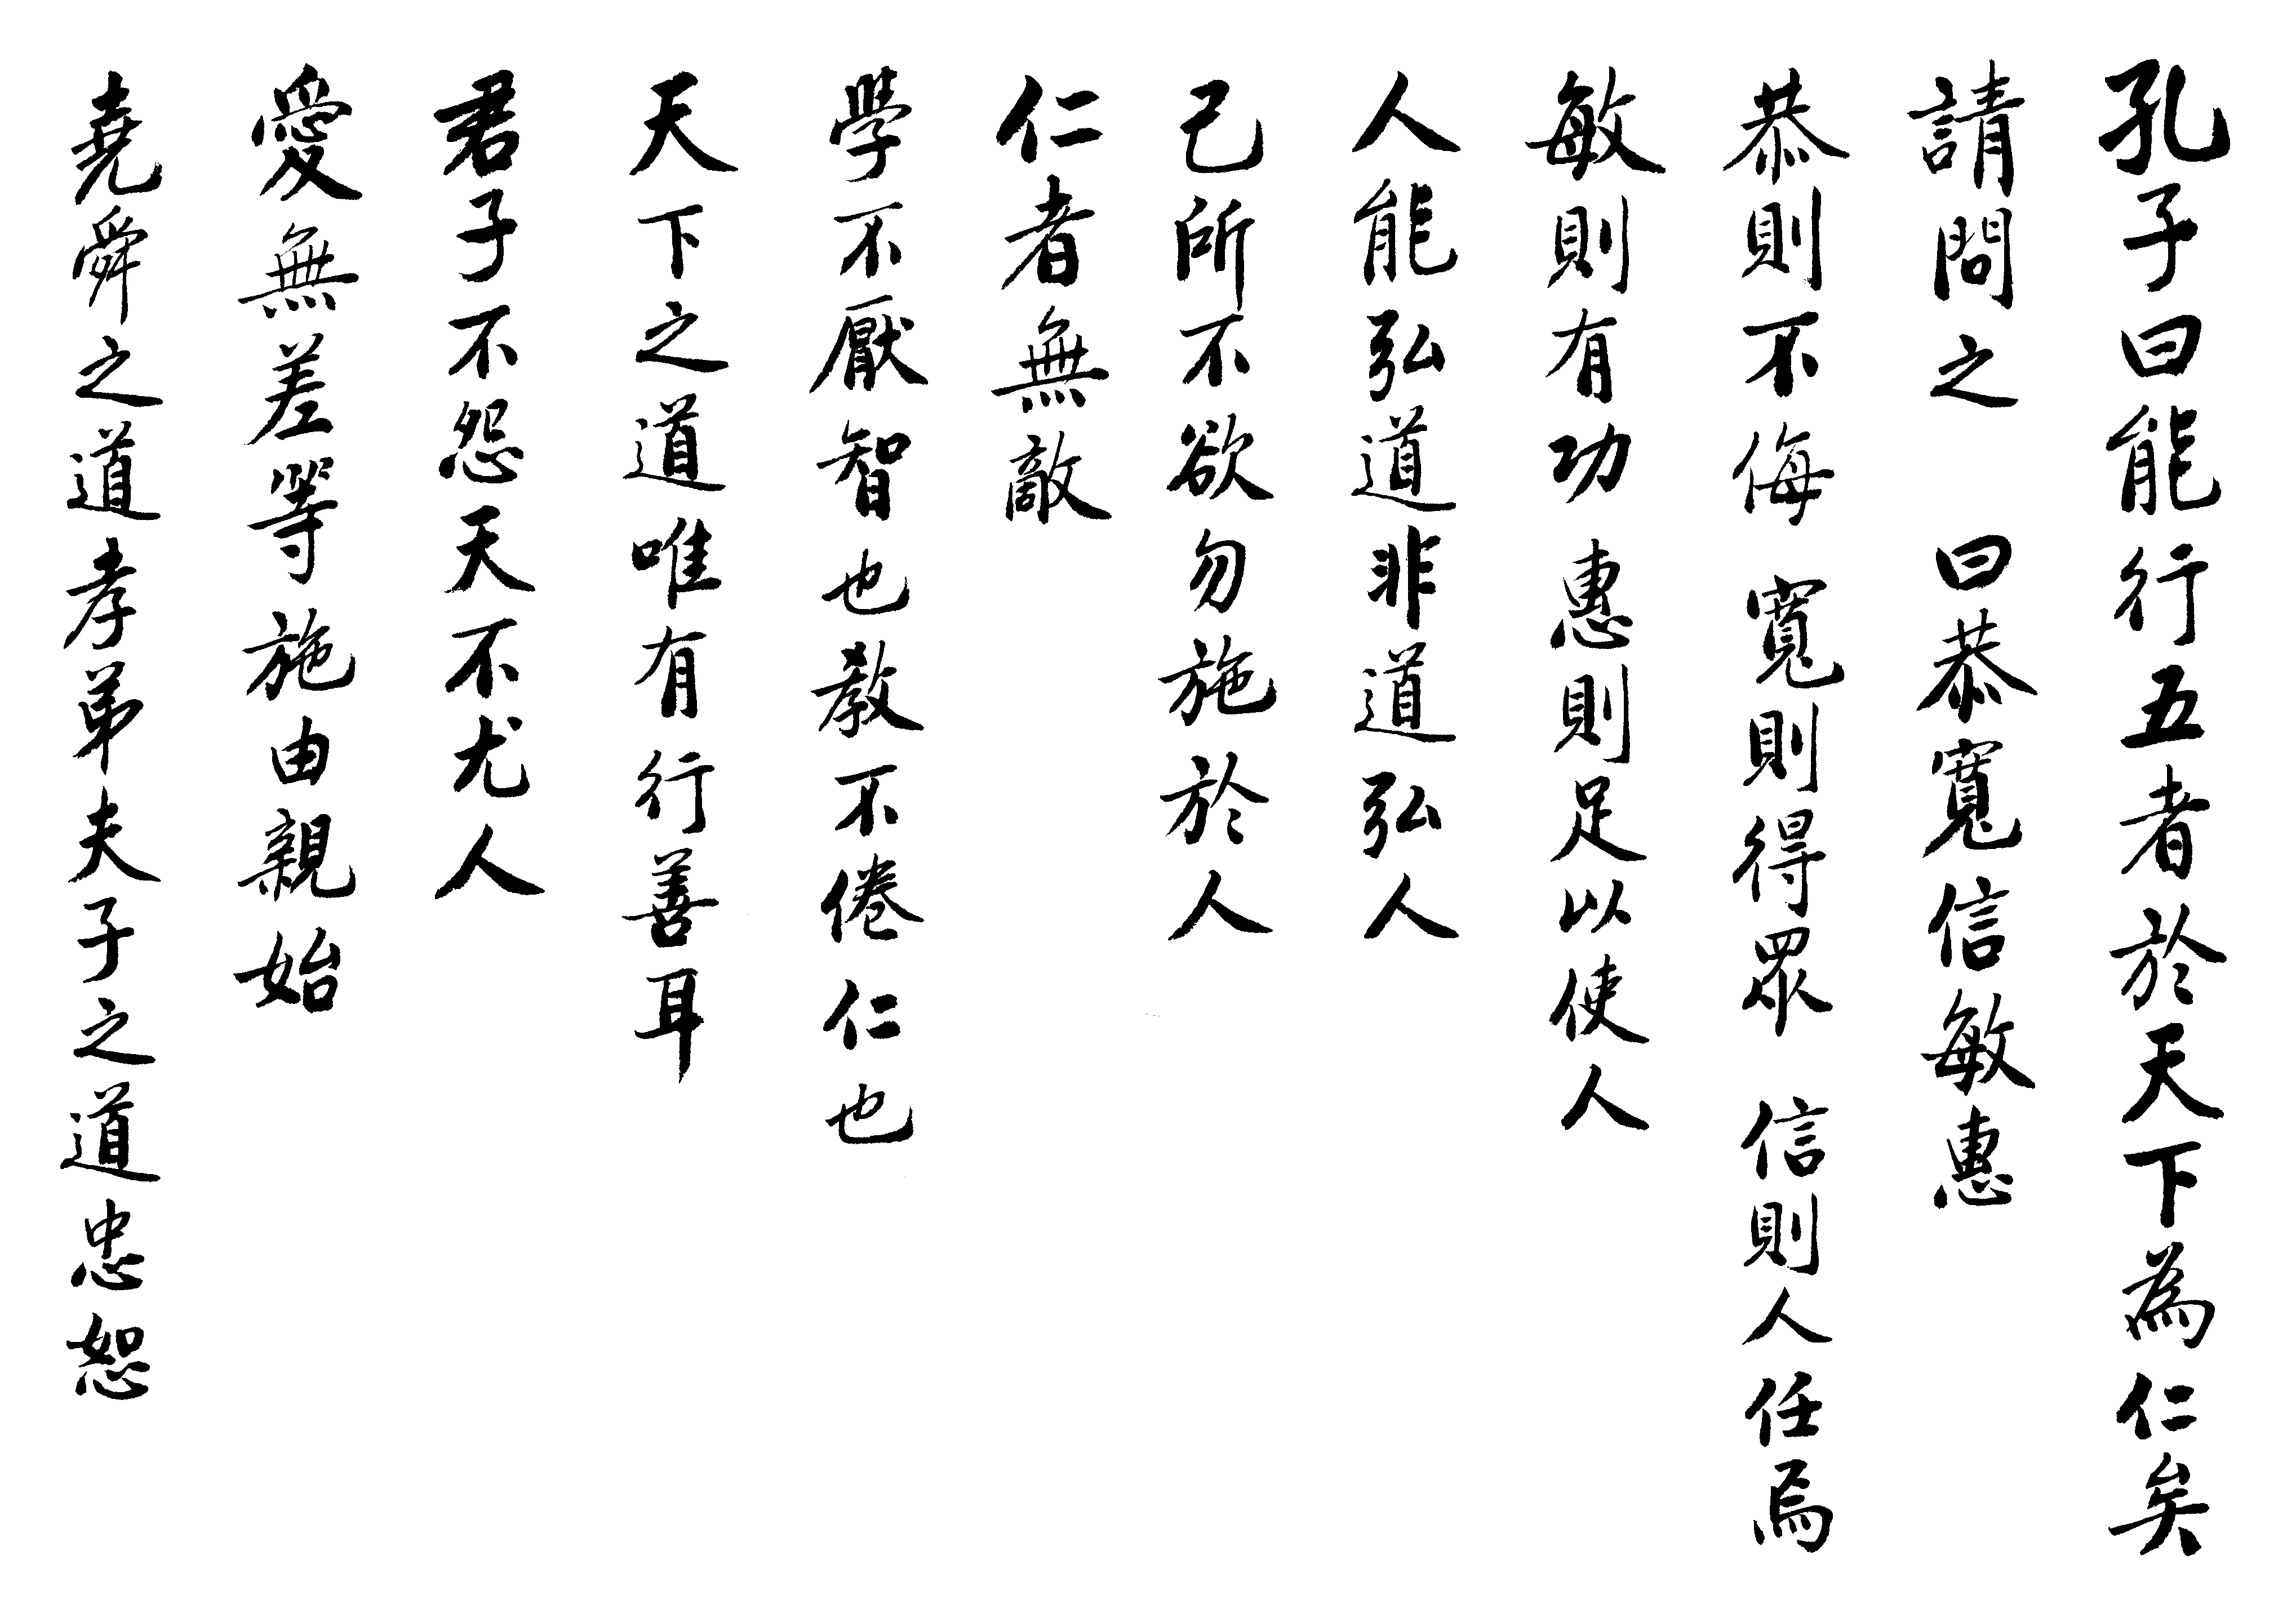 孔子曰能行五者於天下為仁矣
請問之 曰恭寬信敏惠
恭則不侮 寬則得眾 信則人任焉
敏則有功 惠則足以使人
人能弘道非道弘人
己所不欲勿施於人
仁者無敵
學不厭智也教不倦仁也
天下之道唯有行善耳
君子不怨天不尤人
愛無差等施由親始
堯舜之道孝弟夫子之道忠恕